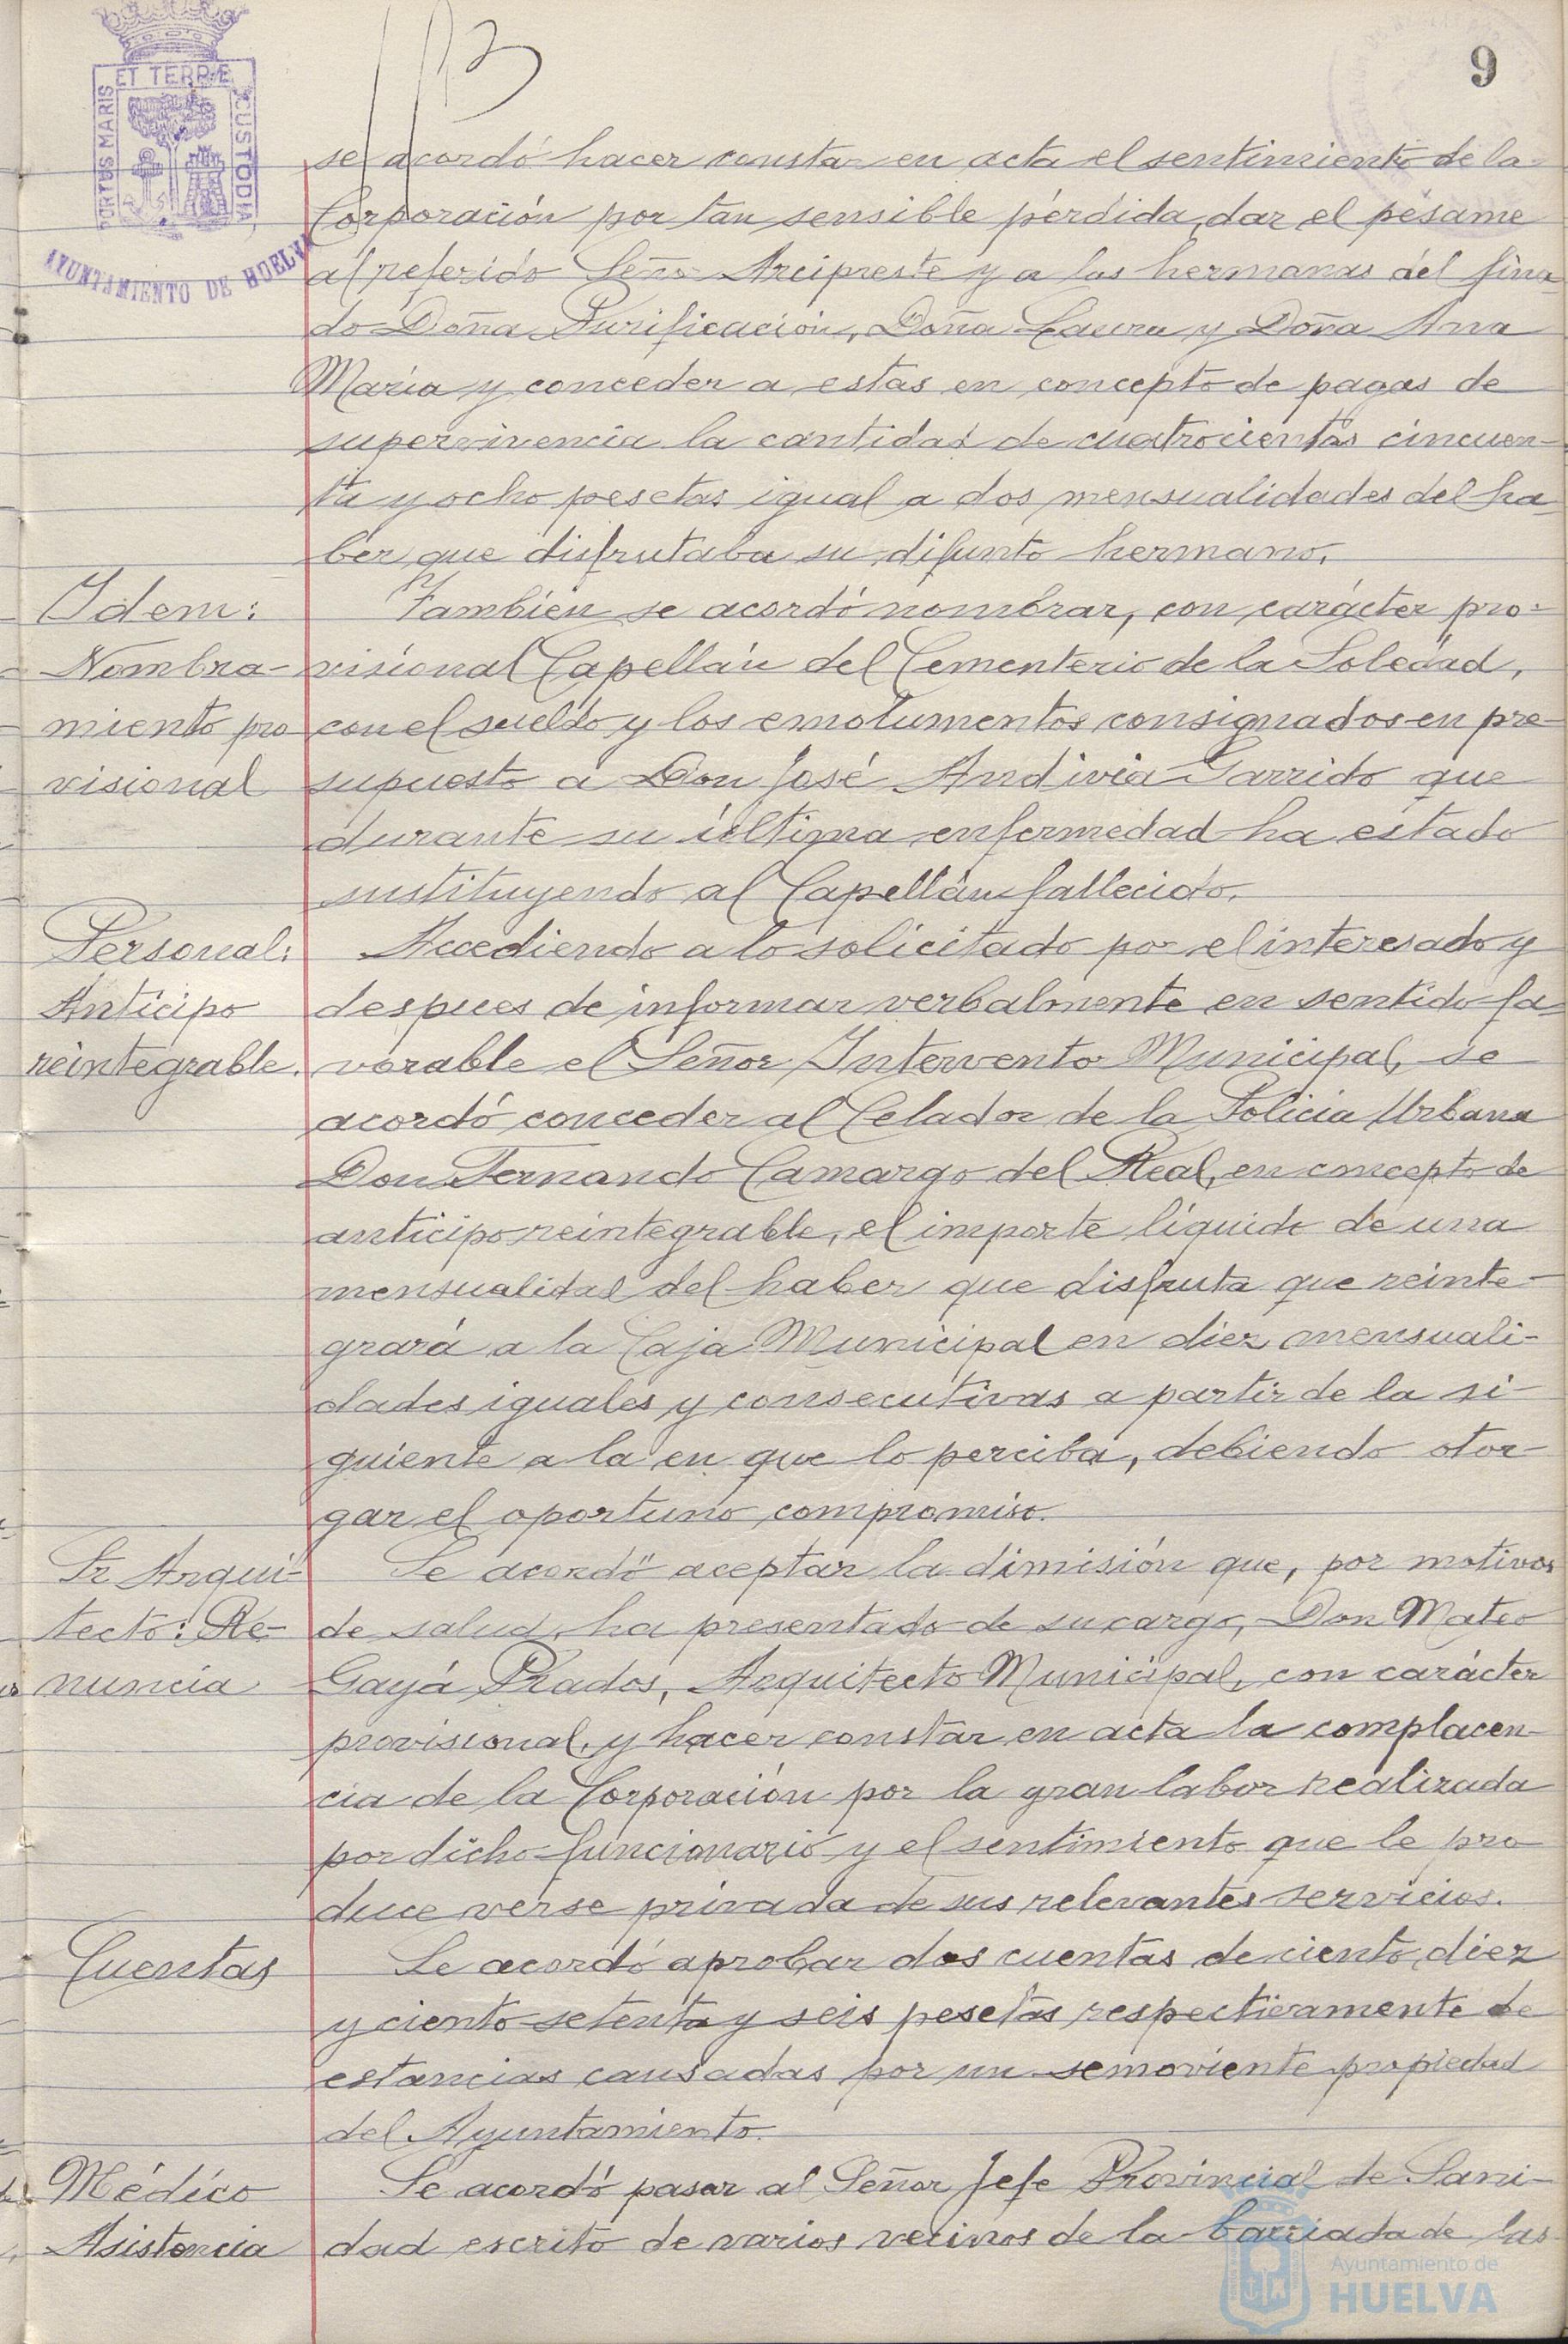 113
9
PORTUS MARIS ET TERRE CUSTODIA
AYUNTAMIENTO DE HUELVA
se acordó hacer constar en acta el sentimiento de la
Corporación por tan sensible pérdida, dar el pésame
al referido Señor Arcipreste y a las hermanas del fina-
do Doña Purificación, Doña Laura y Doña Ana
María y conceder a estas en concepto de pagas de
supervivencia la cantidad de cuatrocientas cincuen-
ta y ocho pesetas igual a dos mensualidades del ha-
ber que disfrutaba su difunto hermano.
Idem:
Nombra-
miento pro
visional
También se acordó nombrar, con carácter pro-
visional Capellán del Cementerio de la Soledad,
con el sueldo y los emolumentos consignados en pre-
supuesto a Don José Andivia Garrido que
durante su última enfermedad ha estado
sustituyendo al Capellán fallecido.
Personal:
Anticipo
reintegrable.
Accediendo a lo solicitado por el interesado y
despues de informar verbalmente en sentido fa-
vorable el Señor Interventor Municipal, se
acordó conceder al Celador de la Policia Urbana
Don Fernando Camargo del Real, en concepto de
anticipo reintegrable, el importe líquido de una
mensualidad del haber que disfruta que reinte-
grará a la Caja Municipal en diez mensuali-
dades iguales y consecutivas a partir de la si-
guiente a la en que lo perciba, debiendo otor-
gar el oportuno compromiso.
Sr Arqui-
tecto: Re-
nuncia
Se acordó aceptar la dimisión que, por motivos
de salud, ha presentado de su cargo, Don Mateo
Gayá Prados, Arquitecto Municipal, con carácter
provisional, y hacer constar en acta la complacen-
cia de la Corporación por la gran labor realizada
por dicho funcionario y el sentimiento que le pro
duce verse privada de sus relevantes servicios.
Cuentas
Se acordó aprobar dos cuentas de ciento diez
y ciento setenta y seis pesetas respectivamente de
estancias causadas por un semoviente propiedad
del Ayuntamiento.
Médico
Asistencia
Se acordó pasar al Señor Jefe Provincial de Sani-
dad escrito de varios vecinos de la barriada de las
Ayuntamiento de
HUELVA